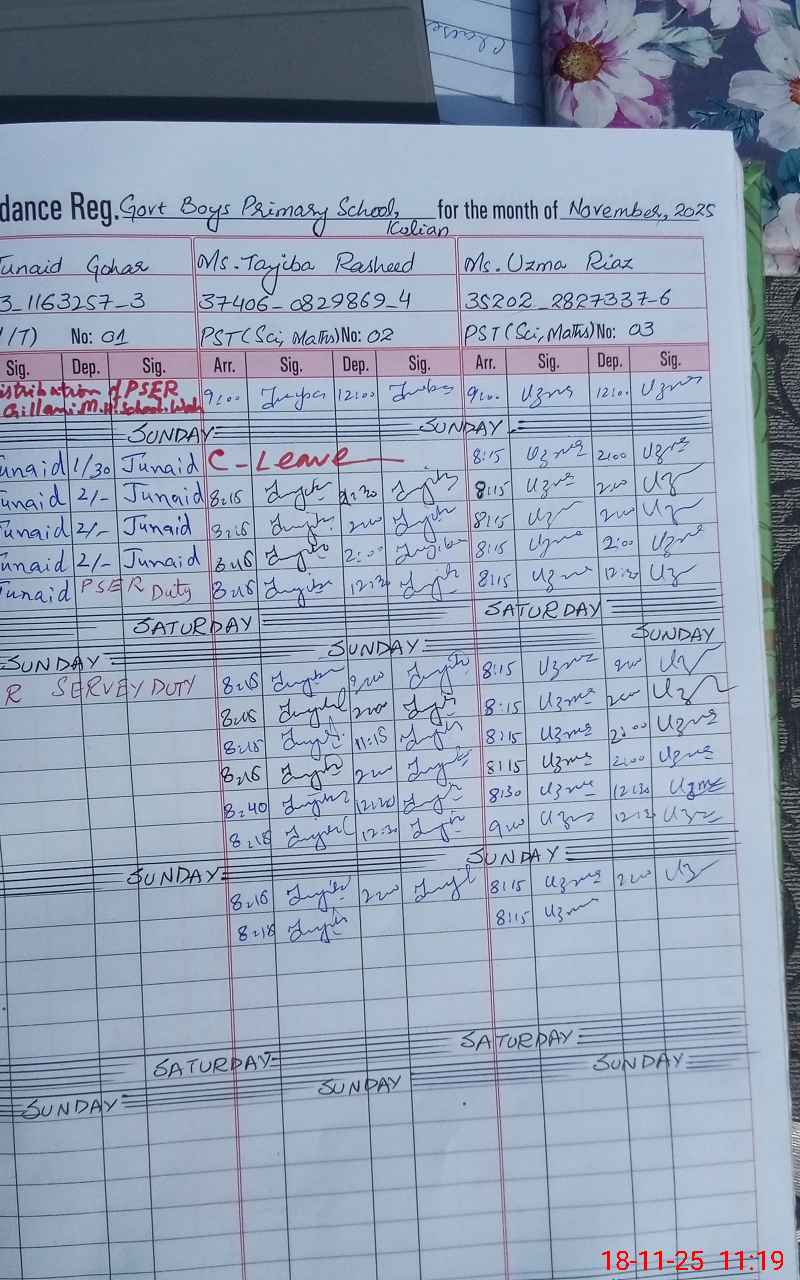 Classes
dance Reg. Govt Boys Primary School, for the month of November, 2025
Kolian
Junaid Gohar Ms. Tayiba Rasheed Ms. Uzma Riaz
3_1163257_3 37406_0829869_4 35202_2827337-6
/T) No: 01 PST (Sci, Maths) No: 02 PST (Sci, Maths) No: 03
Sig. Dep. Sig. Arr. Sig. Dep. Sig. Arr. Sig. Dep. Sig.
istribution of PSER 9:00 12:00 9:00 Uzma 12:00 Uzma
Gillani M. H. School.
SUNDAY SUNDAY
unaid 1/30 Junaid C-Leave 8:15 Uzma 2:00 Uzma
unaid 2/- Junaid 8:15 8:15 Uzma 2:00 Uz
unaid 2/- Junaid 8:15 2:00 8:15 Uz 2:00 Uz
unaid 2/- Junaid 8:15 2:00 Tayiba 8:15 Uzma 2:00 Uzma
Junaid PSER Duty 8:15 Tayiba 12:30 8:15 Uzma 12:30 Uz
SATURDAY SATURDAY
SUNDAY SUNDAY SUNDAY
R SERVEY DUTY 8:15 2:00 8:15 Uzma 2:00 Uz
8:15 2:00 8:15 Uzma 2:00 Uz
8:15 11:15 8:15 Uzma 2:00 Uzma
8:15 2:00 8:15 Uzma 2:00 Uzma
8:40 12:30 8:30 Uzma 12:30 Uzma
8:15 12:30 9:00 Uzma 12:30 Uzma
SUNDAY SUNDAY
8:15 2:00 8:15 Uzma 2:00 Uz
8:15 8:15 Uzma
SATURDAY SATURDAY
SUNDAY SUNDAY SUNDAY
18-11-25 11:19